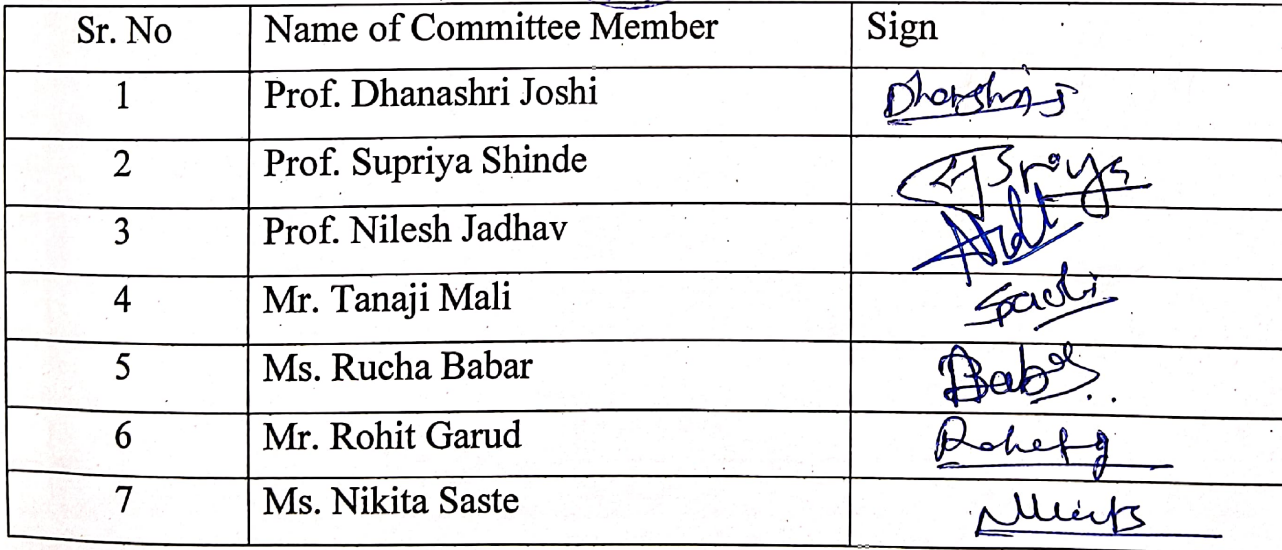 Sr. No Name of Committee Member Sign
1 Prof. Dhanashri Joshi
2 Prof. Supriya Shinde
3 Prof. Nilesh Jadhav
4 Mr. Tanaji Mali
5 Ms. Rucha Babar
6 Mr. Rohit Garud
7 Ms. Nikita Saste